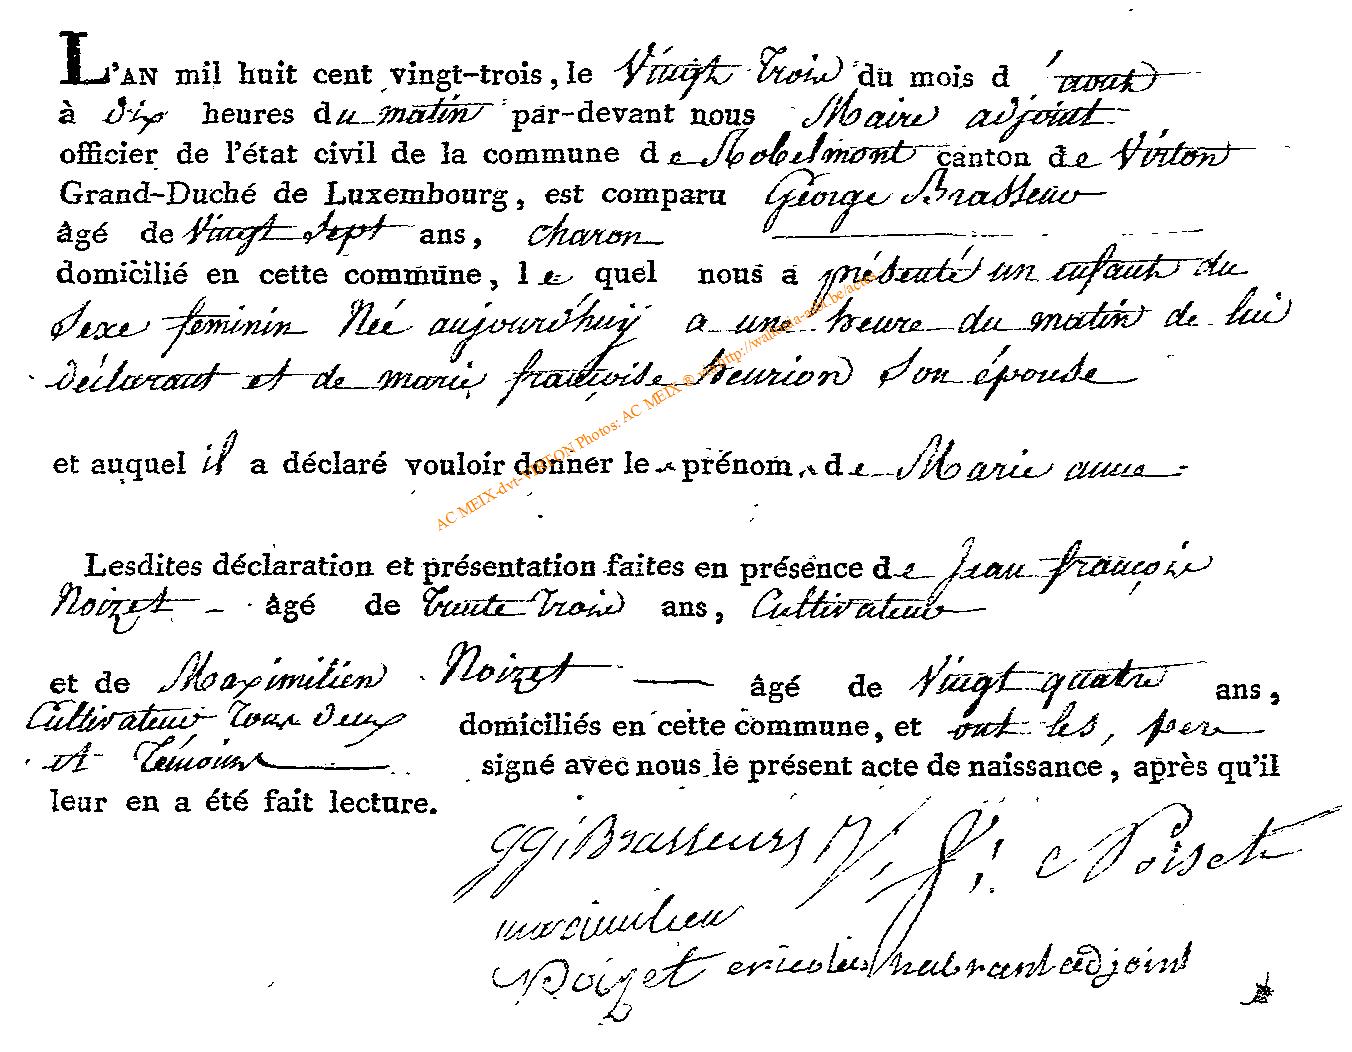 L'AN mil huit cent vingt-trois, le Vingt Trois du mois d'aout
à dix heures du matin par-devant nous Maire adjoint
officier de l'état civil de la commune de Robelmont canton de Virton
Grand-Duché de Luxembourg, est comparu George Brasseur
âgé de Vingt Sept ans, charon
domicilié en cette commune, le quel nous a présenté un enfant du
Sexe feminin Née aujourd'huÿ a une heure du matin de lui
déclarant et de marie françoise heurion Son épouse
et auquel il a déclaré vouloir donner le prénom de Marie anne
AC MEIX-dvt-VIRTON Photos: AC MEIX ®
Lesdites déclaration et présentation faites en présence de Jean françois
Noizet âgé de Trente Trois ans, Cultivateur
et de Maximilien Noizet âgé de Vingt quatre ans,
Cultivateur Tous deux domiciliés en cette commune, et ont les, pere
et Témoins signé avec nous le présent acte de naissance, après qu'il
leur en a été fait lecture.
ggi Brasseurs J: f: Noiset
maximilien
Noizet adjoint